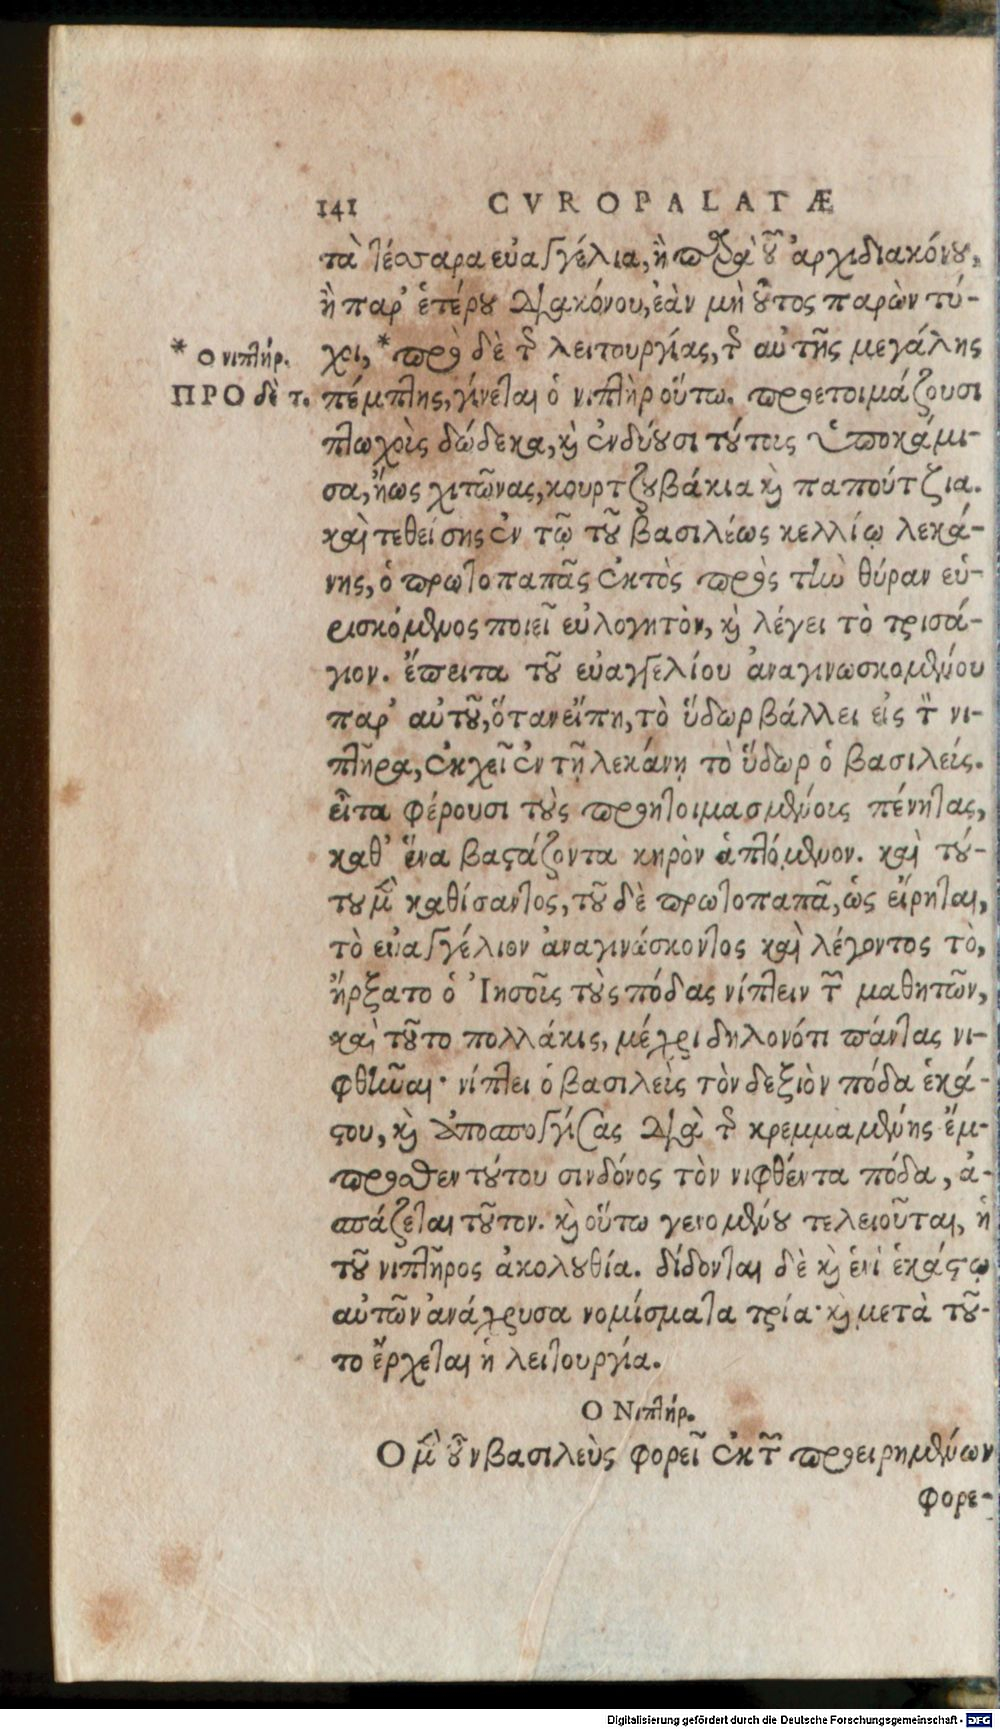 141 CVROPALATÆ
τὰ τέσσαρα εὐαγγέλια, ἢ παρὰ τοῦ ἀρχιδιακόνου,
ἢ παρ' ἑτέρου διακόνου, ἐὰν μὴ οὗτος παρὼν τύ-
* Ο νιπτήρ.
χῃ, * πρὸ δὲ τῆς λειτουργίας, τῆς αὐτῆς μεγάλης
ΠΡΟ δὲ τ.
πέμπτης, γίνεται ὁ νιπτὴρ οὕτω. προετοιμάζουσι
πτωχοὺς δώδεκα, καὶ ἐνδύουσι τούτοις ὑποκάμι-
σα, ἤως χιτῶνας, κουρτζουβάκια καὶ παπούτζια.
καὶ τεθείσης ἐν τῷ τοῦ βασιλέως κελλίῳ λεκά-
νης, ὁ πρωτοπαπᾶς ἐκτὸς πρὸς τὴν θύραν εὑ-
ρισκόμενος ποιεῖ εὐλογητὸν, καὶ λέγει τὸ τρισά-
γιον. ἔπειτα τοῦ εὐαγγελίου ἀναγινωσκομένου
παρ' αὐτοῦ, ὅταν εἴπῃ, τὸ ὕδωρ βάλλει εἰς τὸν νι-
πτῆρα, ἐκχεῖ ἐν τῇ λεκάνῃ τὸ ὕδωρ ὁ βασιλεύς.
εἶτα φέρουσι τοὺς προητοιμασμένους πένητας,
καθ' ἕνα βαστάζοντα κηρὸν ἁπτόμενον. καὶ τού-
του μὲν καθίσαντος, τοῦ δὲ πρωτοπαπᾶ, ὡς εἴρηται,
τὸ εὐαγγέλιον ἀναγινώσκοντος καὶ λέγοντος τὸ,
ἤρξατο ὁ Ἰησοῦς τοὺς πόδας νίπτειν τῶν μαθητῶν,
καὶ τοῦτο πολλάκις, μέχρι δηλονότι πάντας νι-
φθῆναι· νίπτει ὁ βασιλεὺς τὸν δεξιὸν πόδα ἑκά-
στου, καὶ ἀποσπογγίσας διὰ τῆς κρεμμαμένης ἔμ-
προσθεν τούτου σινδόνος τὸν νιφθέντα πόδα, ἀ-
σπάζεται τοῦτον. καὶ οὕτω γενομένου τελειοῦται, ἡ
τοῦ νιπτῆρος ἀκολουθία. δίδονται δὲ καὶ ἑνὶ ἑκάστῳ
αὐτῶν ἀνάχρυσα νομίσματα τρία· καὶ μετὰ τοῦ-
το ἔρχεται ἡ λειτουργία.
Ο Νιπτήρ.
Ο μὲν οὖν βασιλεὺς φορεῖ ἐκ τῶν προειρημένων
φορε-
Digitalisierung gefördert durch die Deutsche Forschungsgemeinschaft - DFG